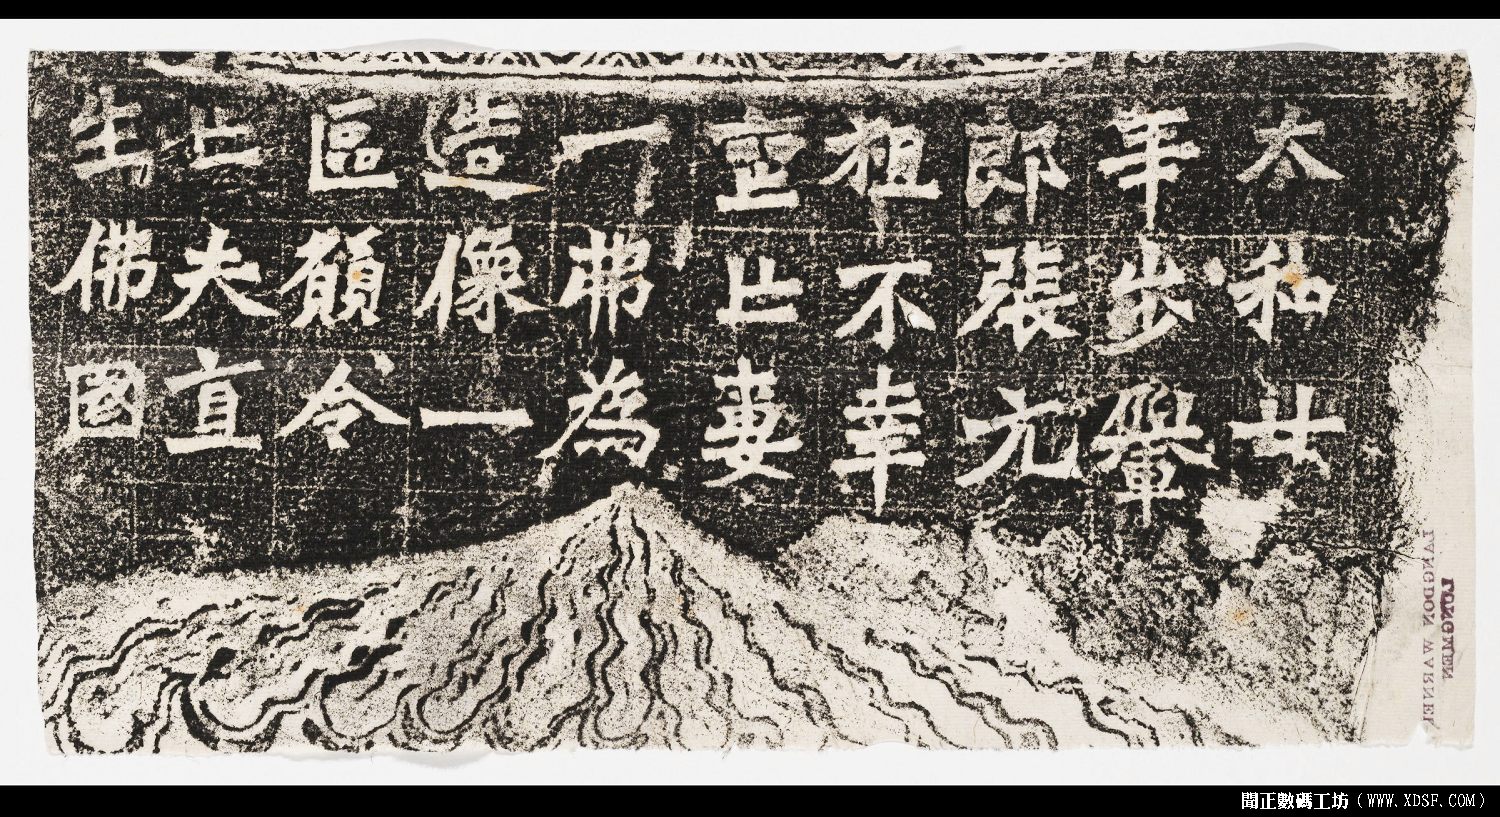 太和廿
年步輦
郎張元
祖不幸
喪亡妻
一弗為
造像一
區願令
亡夫直
生佛國
LUNGMEN
LANGDON WARNER
聞正數碼工坊（WWW.XDSF.COM）